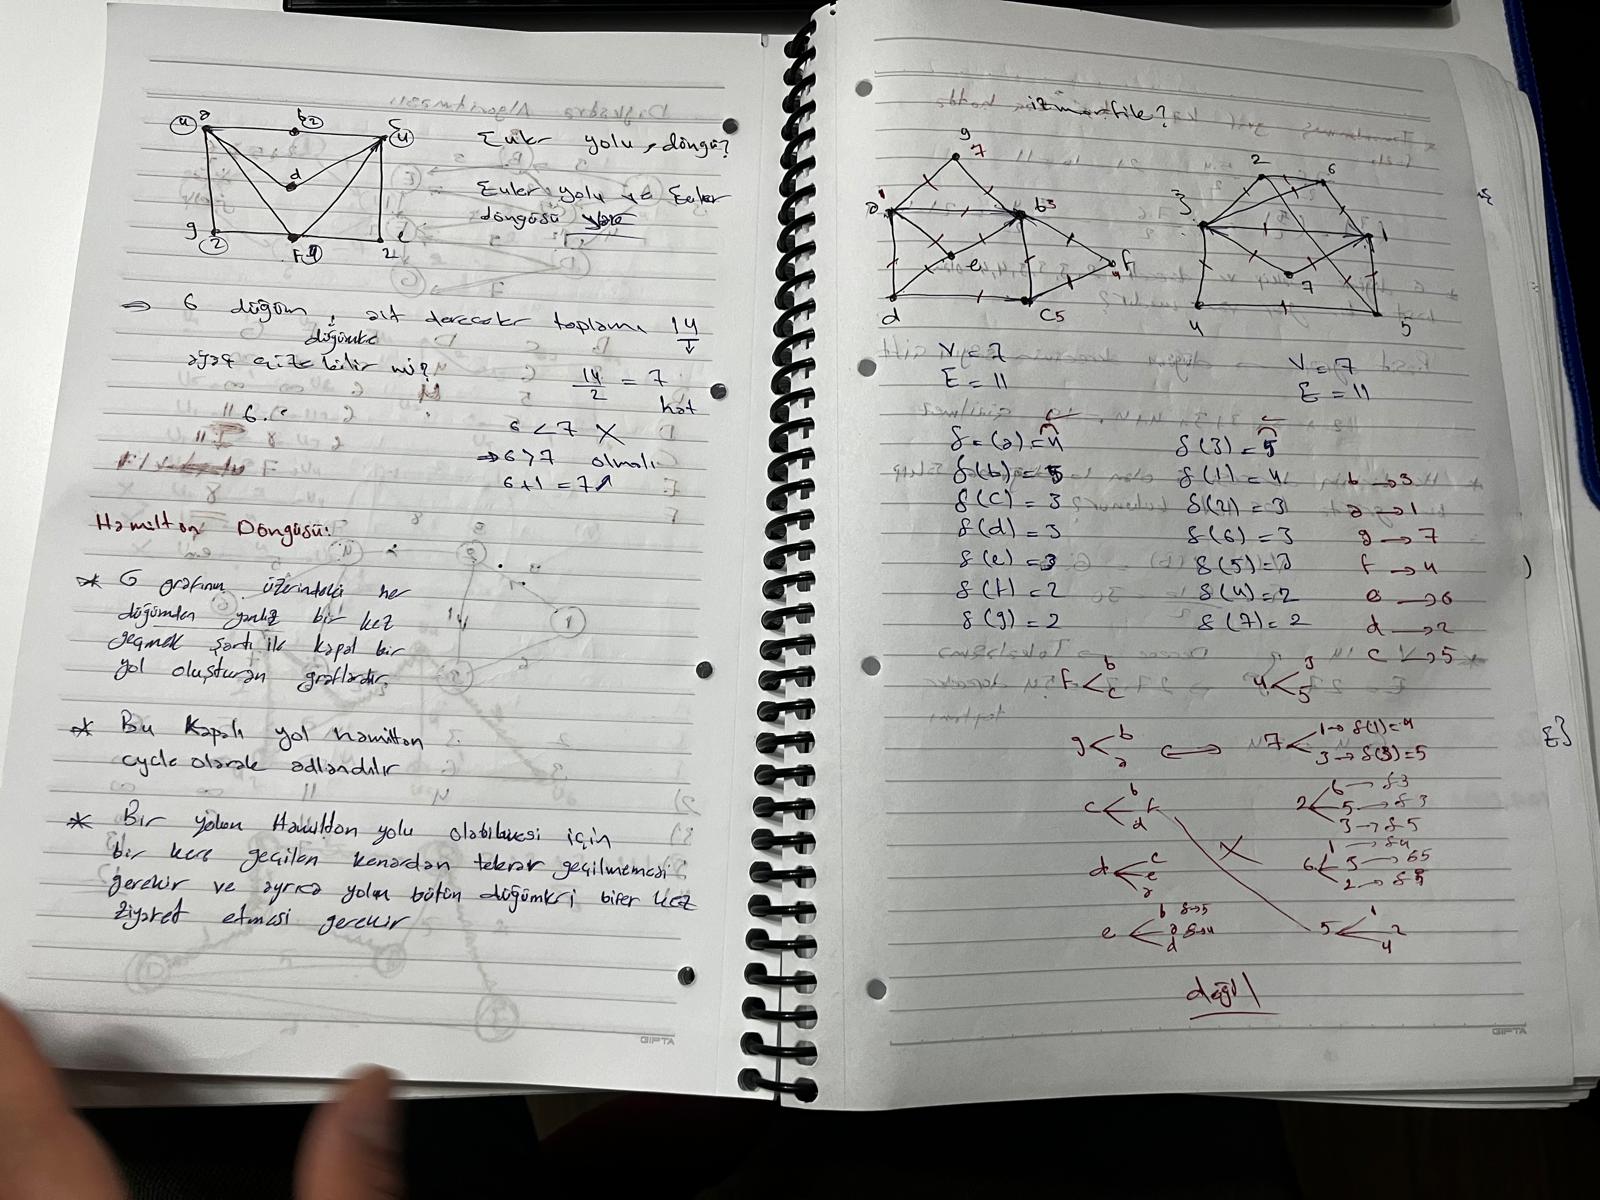 a
4
b
2
c
4
d
g
2
f
4
e
2
Euler yolu, döngü?
Euler yolu ve Euler
döngüsü
⇒ 6 düğüm, alt dereceler toplamı 14
düğümle
ağaç çizilebilir mi?
14/2 = 7
hat
6 < 7 X
⇒ 6 > 7 olmalı
6+1 = 7
Hamilton Döngüsü:
* G grafının üzerindeki her
düğümden yanlız bir kez
geçmek şartı ile kapalı bir
yol oluşturan graflardır.
* Bu kapalı yol hamilton
cycle olarak adlandılır
* Bir yolun Hamilton yolu olabilmesi için
bir kere geçilen kenardan tekrar geçilmemesi
gerekir ve ayrıca yolun bütün düğümleri birer kez
ziyaret etmesi gerekir
GIPTA
izmorfik?
g
7
a
b
3
e
f
4
d
c 5
2
6
3
1
7
4
5
V = 7
E = 11
V = 7
E = 11
δ = (a) = 4
δ(3) = 5
δ(b) = 5
δ(1) = 4
b → 3
δ(c) = 3
δ(2) = 3
a → 1
δ(d) = 3
δ(6) = 3
g → 7
δ(e) = 3
δ(5) = 3
f → 4
δ(f) = 2
δ(4) = 2
e → 6
δ(g) = 2
δ(7) = 2
d → 2
c → 5
f < b c
4 < 3 5
g < b a
⟺
7 < 1 → δ(1) = 4
3 → δ(3) = 5
c < b f d
2 < 6 → δ3
5 → δ3
3 → δ5
X
d < c e a
6 < 1 → δ4
3 → δ5
2 → δ3
e < b δ→5
a δ→4
d
5 < 1 2 4
değil
GIPTA